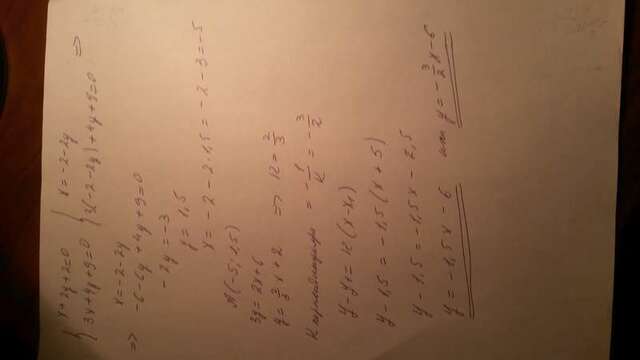 { x+2y+2=0 { x=-2-2y
{ 3x+4y+9=0 { 3(-2-2y)+4y+9=0 =>
=> x=-2-2y
-6-6y+4y+9=0
-2y=-3
y=1,5
x=-2-2·1,5=-2-3=-5
A(-5; 1,5)
3y=2x+6
y=2/3·x+2 => k=2/3
k перпендикуляра = -1/k = -3/2
y-y₁=k(x-x₁)
y-1,5=-1,5(x+5)
y-1,5=-1,5x-7,5
y=-1,5x-6 или y=-3/2x-6